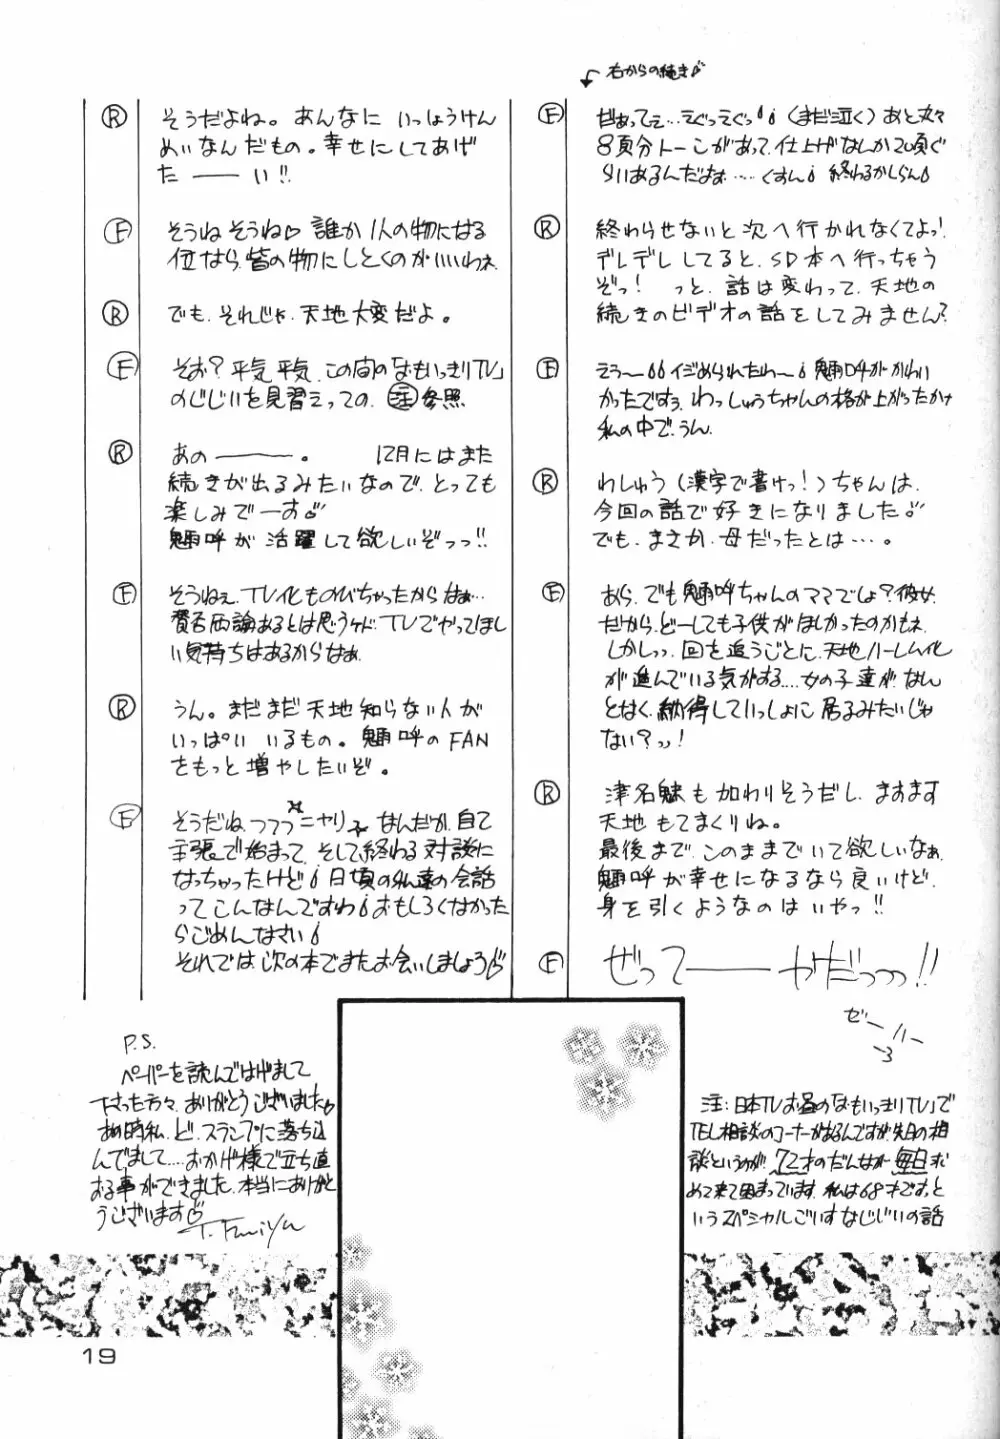 右からの続き
F
だぁってぇ…えぐっえぐっ (まだ泣く) あと丸々
8頁分トーンがあって、仕上げなんか20頁ぐ
らいあるんだよぉ……くすん 終わるかしらん
R
終わらせないと次へ行かれなくてよっ!
デレデレしてると、SD本へ行っちゃう
ぞっ! っと、話は変わって、天地の
続きのビデオの話をしてみません?
F
えぅ〜 イジめられたわ〜 魎呼がかわい
かったですぅ。わっしゅうちゃんの格が上がったかナ
私の中で、うん。
R
わしゅう(漢字で書けっ!)ちゃんは、
今回の話で好きになりました
でも、まさか、母だったとは…。
F
あら、でも魎呼ちゃんのママでしょ?彼女、
だから、どーしても子供がほしかったのかもネ
しかしっっ、回を追うごとに、天地ハーレム化
が進んでいる気がする....女の子達が、なん
となく、納得していっしょに居るみたいじゃ
ない?っっ!
R
津名魅も加わりそうだし、ますます
天地もてまくりね。
最後まで、このままでいて欲しいなぁ
魎呼が幸せになるなら良いけど、
身を引くようなのはいやっ!!
F
ぜって――やだっっっ!!
ゼーハー
R
そうだよね。あんなに いっしょうけん
めいなんだもの。幸せにしてあげ
た――い!!
F
そうねそうね♡ 誰か1人の物になる
位なら、皆の物にしとくのがいいわネ
R
でも、それじゃ、天地大変だよ。
F
そお?平気平気、この間の「なもいっきりTV」
のじじいを見習えっての、注参照
R
あの――。 12月にはまた
続きが出るみたいなので、とっても
楽しみでーす
魎呼が活躍して欲しいぞっっ!!
F
そうねぇ、TV化ものびちゃったからなぁ…
賛否両論あるとは思うケド、TVでやってほし
い気持ちはあるからなぁ
R
うん。まだまだ天地知らない人が
いっぱい いるもの。魎呼のFAN
をもっと増やしたいぞ。
F
そうだね、フフフ ニヤリ なんだか、自己
主張で始まって、そして終わる対談に
なっちゃったけど 日頃の私達の会話
ってこんなんですわ おもしろくなかった
らごめんなさい
それでは次の本でまたお会いしましょう♡
P.S.
ペーパーを読んではげまして
下さった方々、ありがとうございました
あの時私、ど、スランプに落ち込
んでまして....おかげ様で立ち直
おる事ができました。本当にありがと
うございます♡
注:日本TVお昼の「なもいっきりTV」で
TEL相談のコーナーがあるんですが、先日の相
談というのが、72才のだんなが毎日求
めて来て困まっています、私は68才です。と
いうスペシャルごいすなじじいの話
19